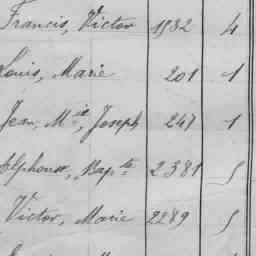 Francis, Victor 1932 4
Louis, Marie 201 1
Jean, M.ie, Joseph 247 1
Alphonse, Bap.te 2381 5
Victor, Marie 2289 5